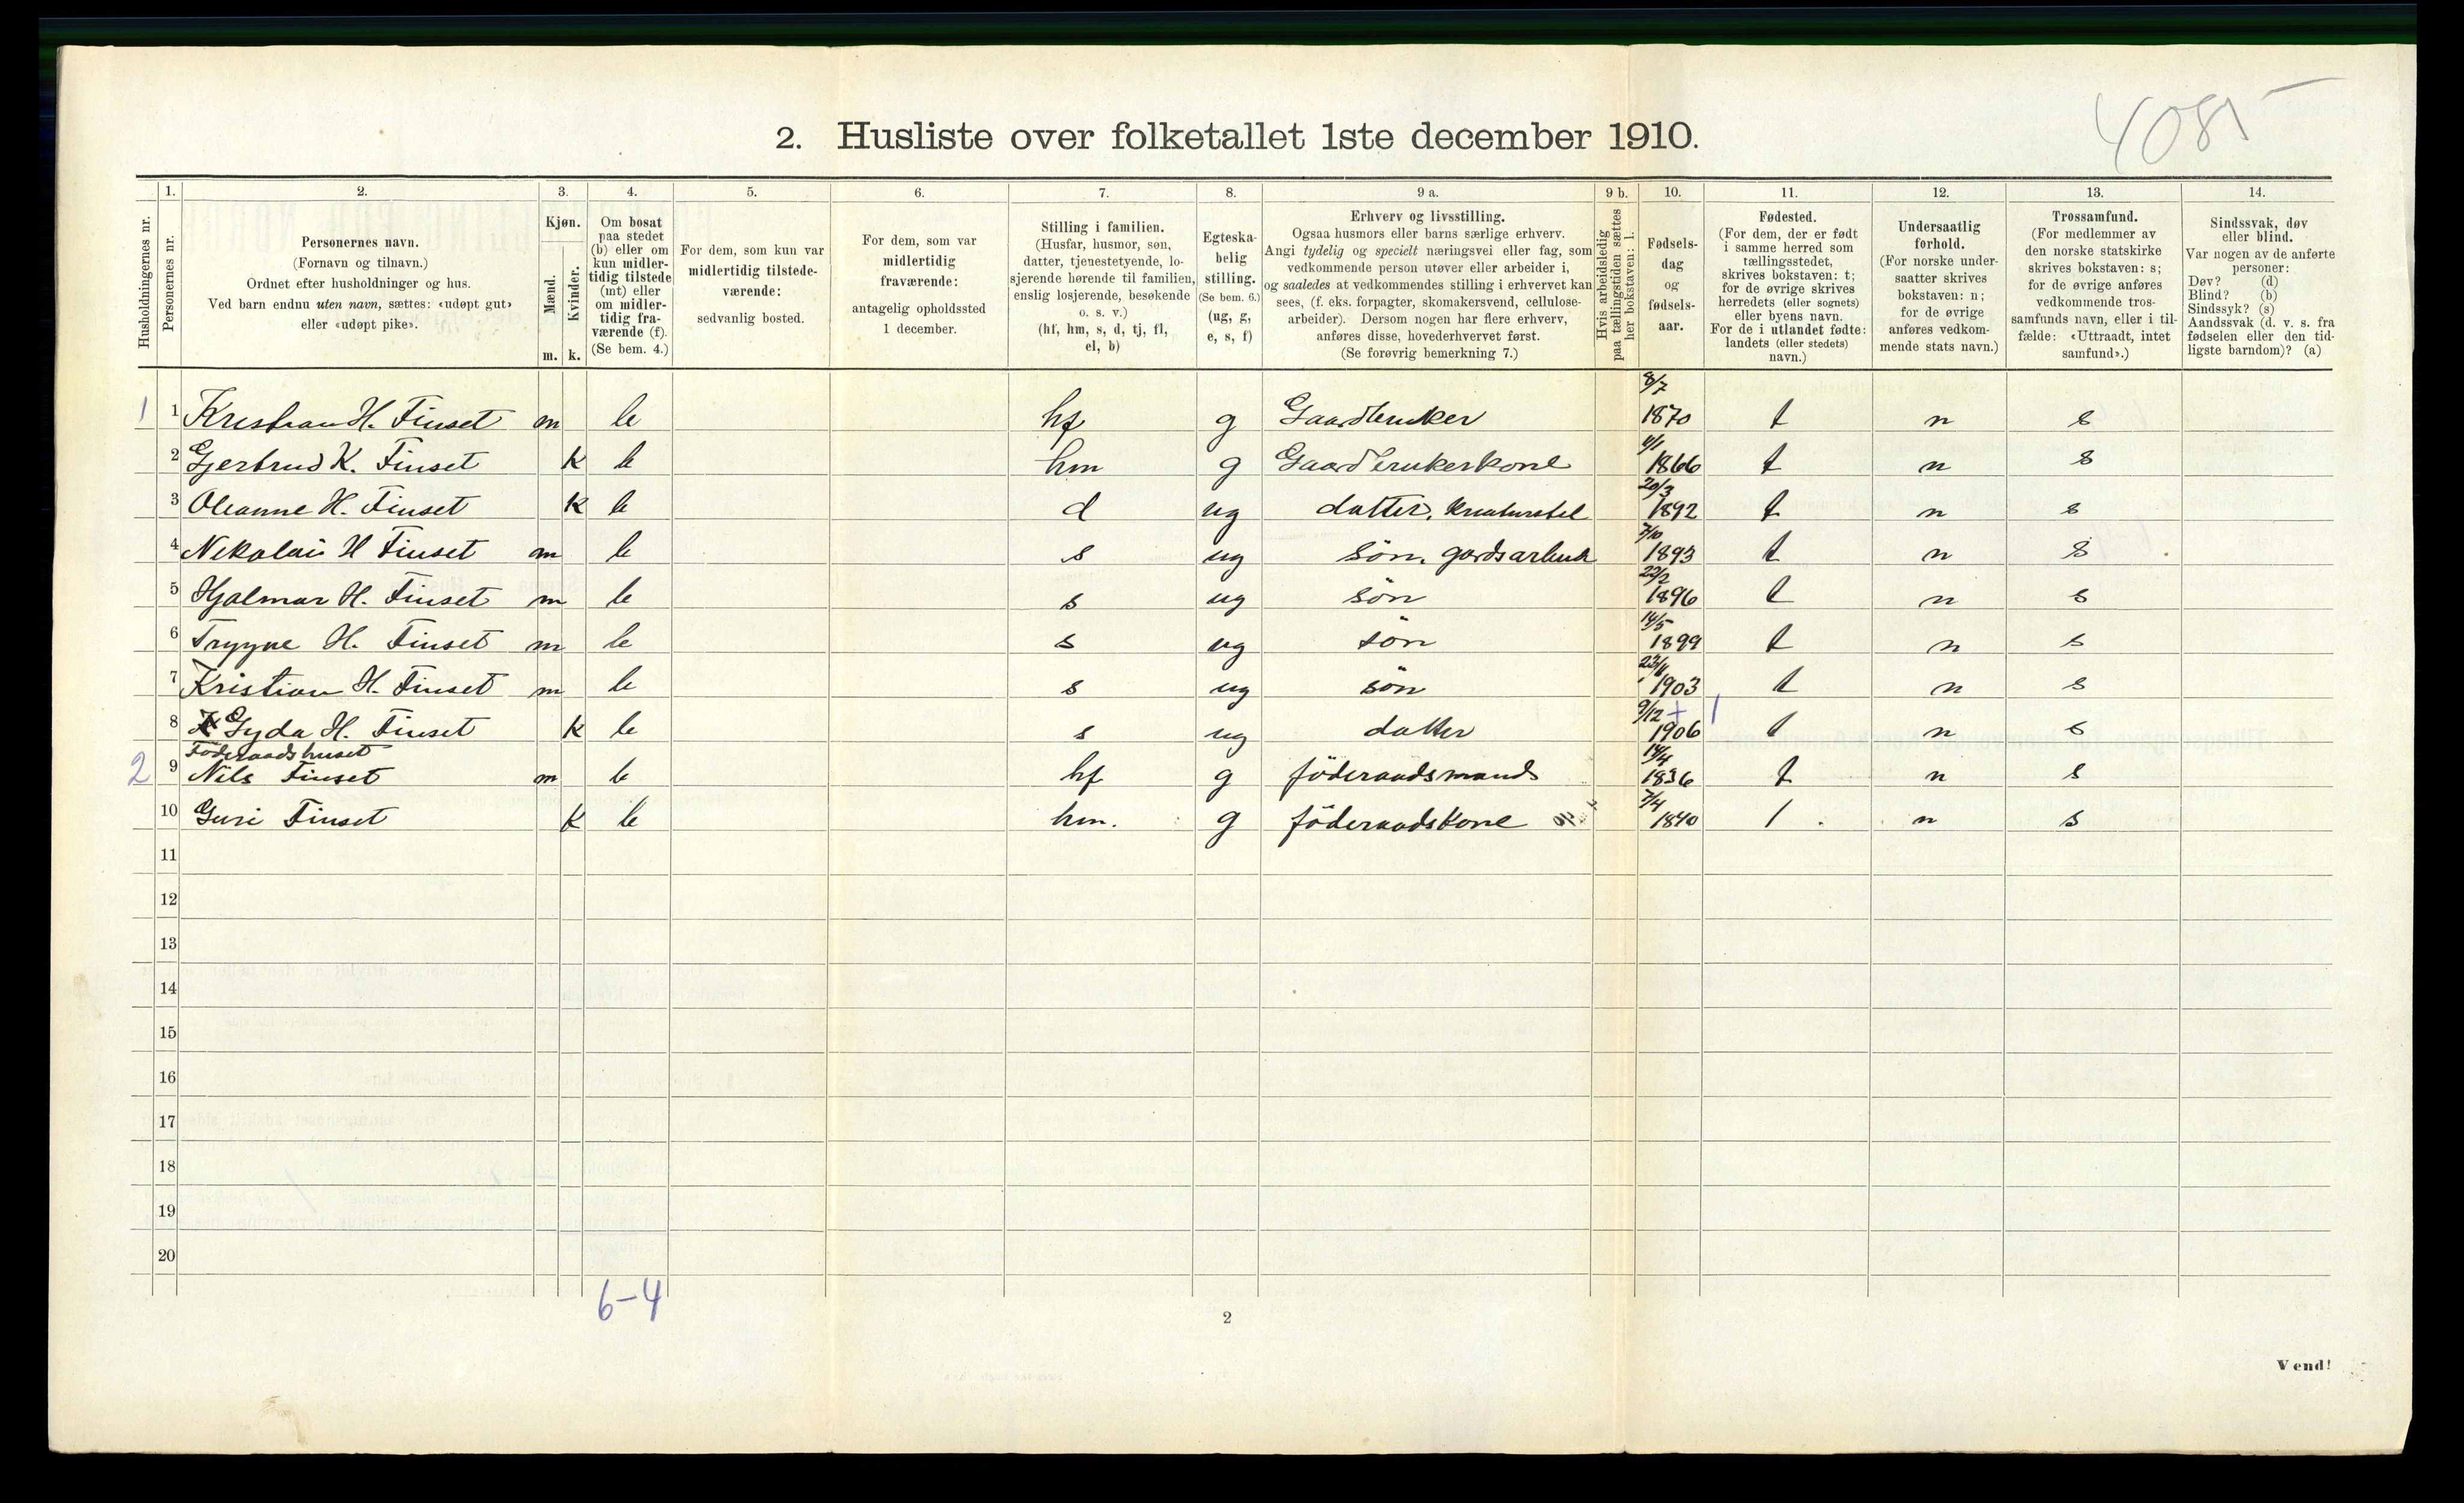 4085
2. Husliste over folketallet 1ste december 1910.
Husholdningernes nr.
1.
Personernes nr.
2.
Personernes navn.
(Fornavn og tilnavn.)
Ordnet efter husholdninger og hus.
Ved barn endnu uten navn, sættes: «udøpt gut»
eller «udøpt pike».
3.
Kjøn.
Mænd.
Kvinder.
m. k.
4.
Om bosat
paa stedet
(b) eller om
kun midler-
tidig tilstede
(mt) eller
om midler-
tidig fra-
værende (f).
(Se bem. 4.)
5.
For dem, som kun var
midlertidig tilstede-
værende:
sedvanlig bosted.
6.
For dem, som var
midlertidig
fraværende:
antagelig opholdssted
1 december.
7.
Stilling i familien.
(Husfar, husmor, søn,
datter, tjenestetyende, lo-
sjerende hørende til familien,
enslig losjerende, besøkende
o. s. v.)
(hf, hm, s, d, tj, fl,
el, b)
8.
Egteska-
belig
stilling.
(Se bem. 6.)
(ug, g,
e, s, f)
9 a.
Erhverv og livsstilling.
Ogsaa husmors eller barns særlige erhverv.
Angi tydelig og specielt næringsvei eller fag, som
vedkommende person utøver eller arbeider i,
og saaledes at vedkommendes stilling i erhvervet kan
sees, (f. eks. forpagter, skomakersvend, cellulose-
arbeider). Dersom nogen har flere erhverv,
anføres disse, hovederhvervet først.
(Se forøvrig bemerkning 7.)
9 b.
Hvis arbeidsledig
paa tællingstiden sættes
her bokstaven: l.
10.
Fødsels-
dag
og
fødsels-
aar.
11.
Fødested.
(For dem, der er født
i samme herred som
tællingsstedet,
skrives bokstaven: t;
for de øvrige skrives
herredets (eller sognets)
eller byens navn.
For de i utlandet fødte:
landets (eller stedets)
navn.)
12.
Undersaatlig
forhold.
(For norske under-
saatter skrives
bokstaven: n;
for de øvrige
anføres vedkom-
mende stats navn.)
13.
Trossamfund.
(For medlemmer av
den norske statskirke
skrives bokstaven: s;
for de øvrige anføres
vedkommende tros-
samfunds navn, eller i til-
fælde: «Uttraadt, intet
samfund».)
14.
Sindssvak, døv
eller blind.
Var nogen av de anførte
personer:
Døv? (d)
Blind? (b)
Sindssyk? (s)
Aandssvak (d. v. s. fra
fødselen eller den tid-
ligste barndom)? (a)
1 1 Kristian H. Finset m b hf g Gaardbruker 8/7 1870 t n s
2 Gjertrud K. Finset k b hm g Gaardbrukerkone 4/1 1866 t n s
3 Oleanne H. Finset k b d ug datter, kreaturstel 20/3 1892 t n s
4 Nekolai H Finset m b s ug søn, gardsarbeid 7/10 1893 t n s
5 Hjalmar H. Finset m b s ug søn 22/2 1896 t n s
6 Trygve H. Finset m b s ug søn 14/5 1899 t n s
7 Kristian H. Finset m b s ug søn 1903 t n s
8 Gyda H. Finset k b s ug datter 9/12 + 1906 1 t n s
Föderaadshuset
2 9 Nils Finset m b hf g föderaadsmand 14/4 1836 t n s
10 Guri Finset k b hm. g föderaadskone 7/4 1840 t n s
11
12
13
14
15
16
17
18
19
20
6-4
2
Vend!